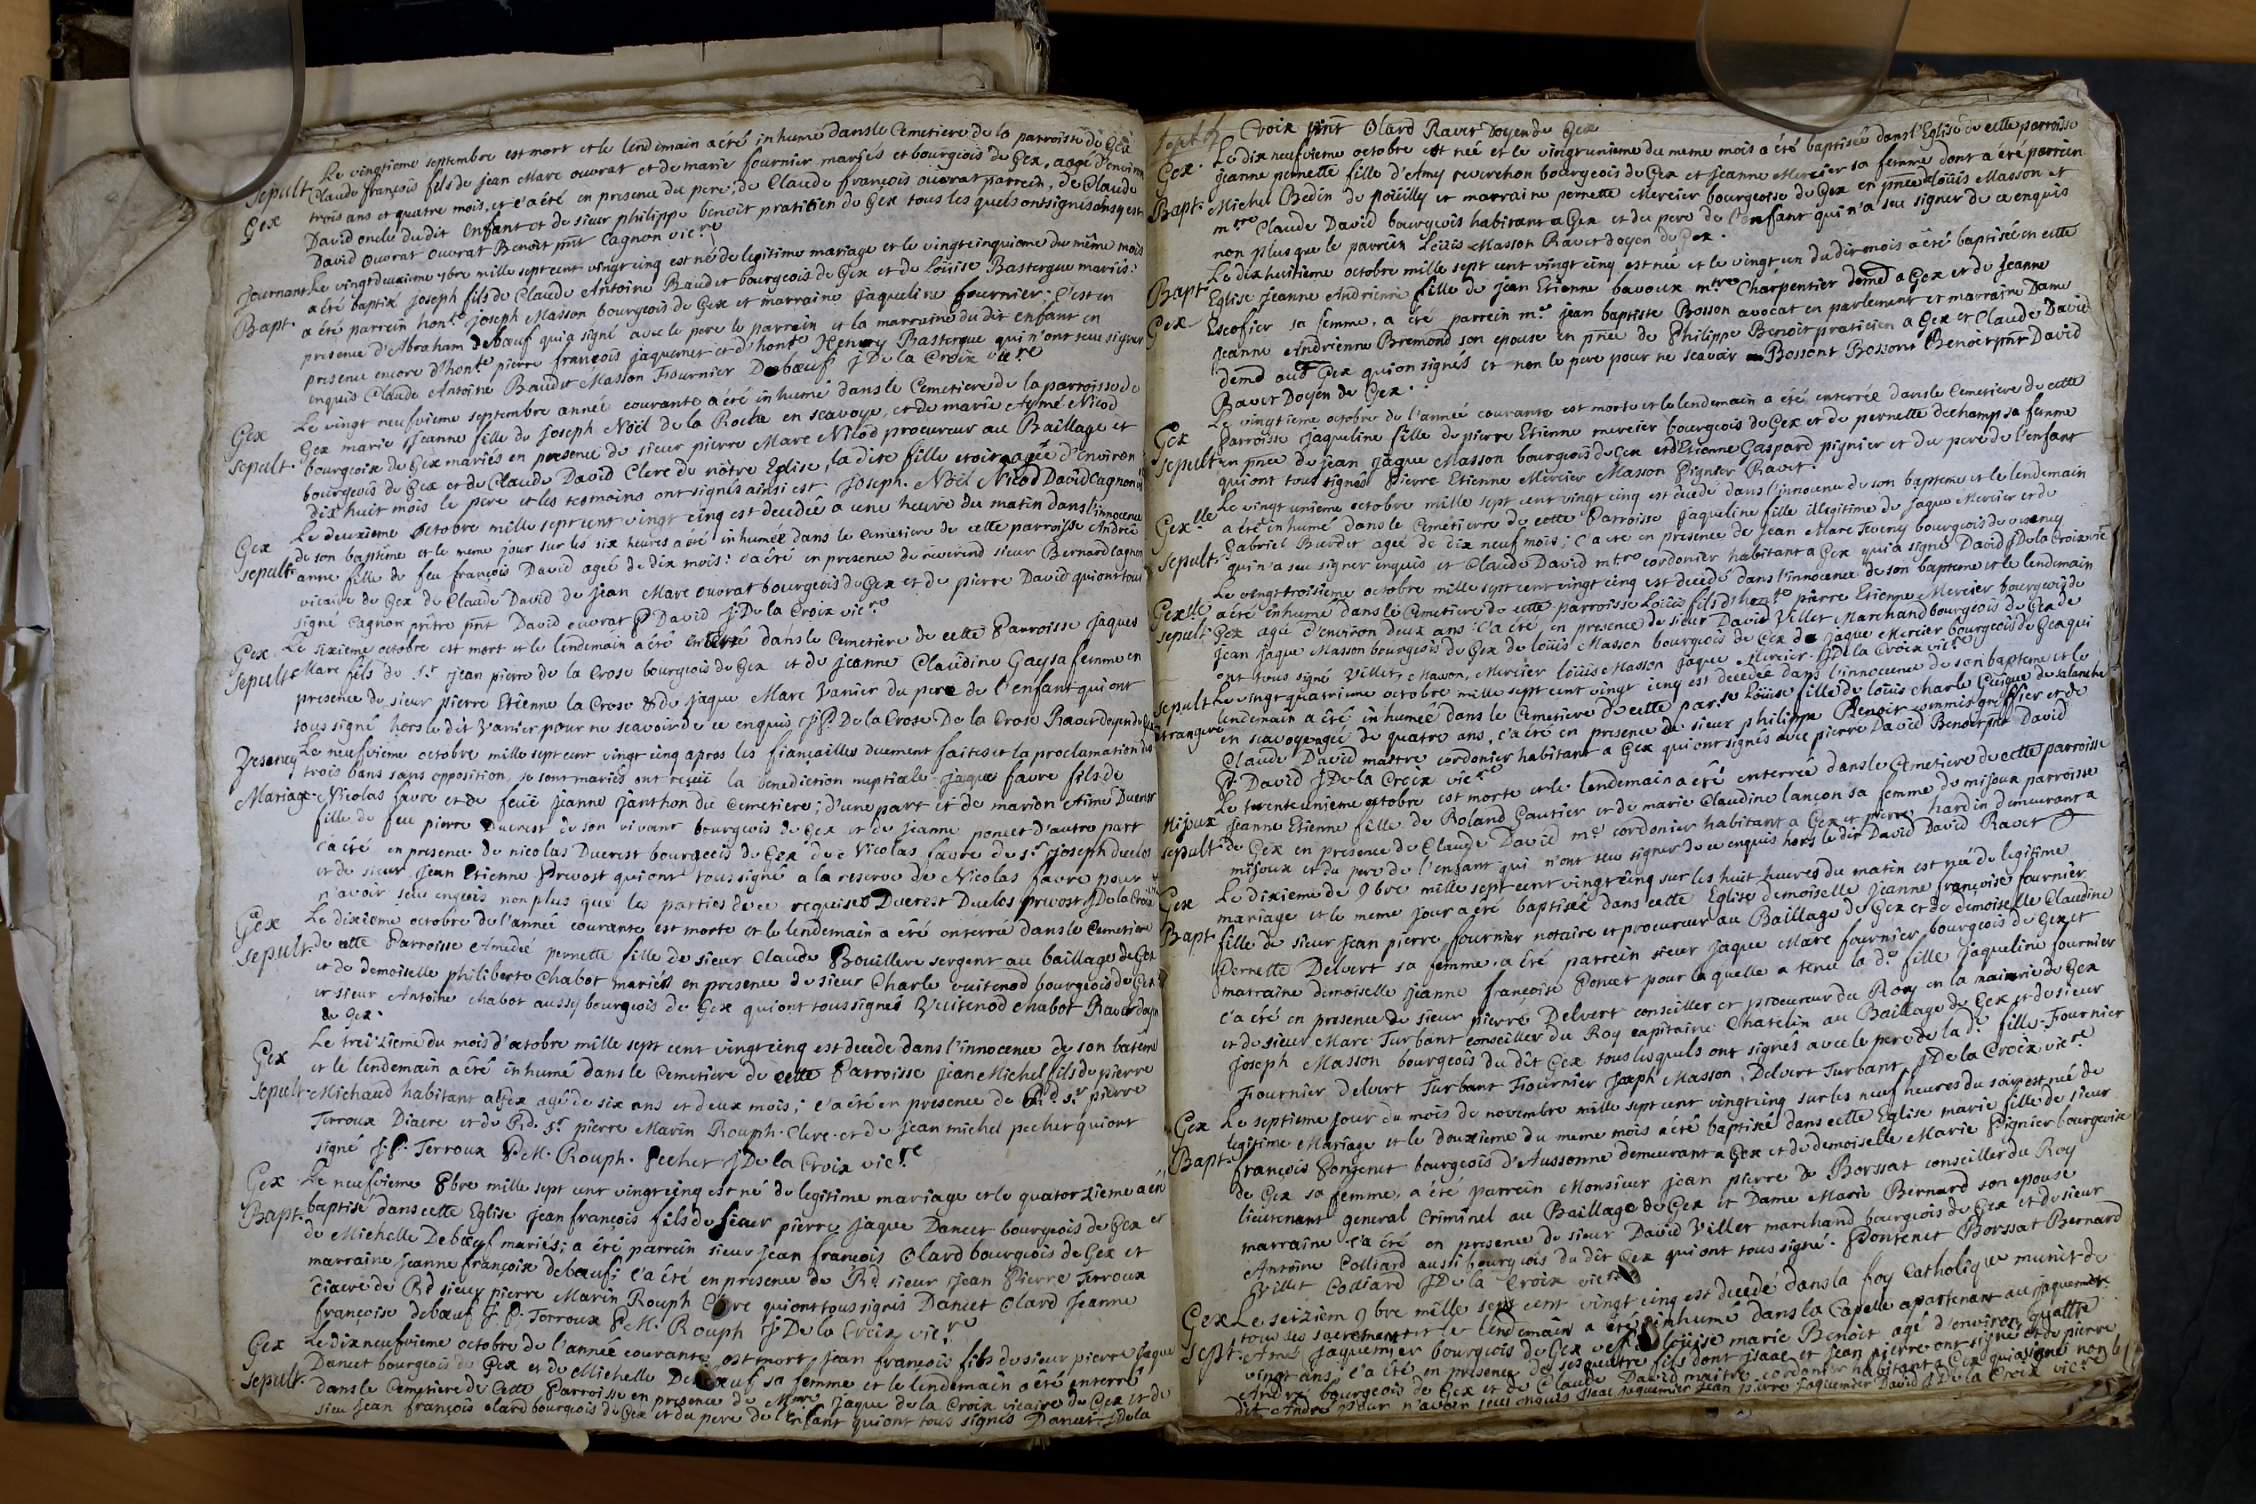 Le vingtieme septembre est mort et le lendemain a été inhumé dans le Cemetiere de la parroisse de Gex
Sepult. Claude françois fils de Jean Marc ouvrat et de marie fournier mariés et bourgeois de Gex, agé d'environ
Gex trois ans et quatre mois, et c'a été en presence du pere, de Claude françois ouvrat parrein, de Claude
David oncle du dit Enfant et de sieur philippe benoit pratitien de Gex tous les quels ont signés ainsy est
David ouvrat ouvrat Benoit pnt Cagnon vicre
Journant Le vingtdeuxieme 7bre mille sept cent vingt cinq est né de legitime mariage et le vingtcinquieme du même mois
Bapt. a été baptisé Joseph fils de Claude Antoine Baudet bourgeois de Gex et de Loüise Bastergue mariés:
a été parrein honte joseph Masson bourgeois de Gex et marraine Jaqueline fournier; C'est en
presence d'Abraham deboeuf qui a signé avec le pere le parrein et la marraine du dit enfant en
presence encore d'honte pierre françois jaquemet et d'honte Henry Bastergue qui n'ont sceu signer
enquis Claude Antoine Baudet Masson Fournier Deboeuf J De la Croix vicre
Gex Le vingt neufvieme septembre année courante a été inhumé dans le Cemetiere de la parroisse de
Sepult. Gex marie Jeanne fille de Joseph Noël de la Roche en scavoye, et de marie Aymé Nicod
bourgeoise de Gex mariés en presence de sieur pierre Marc Nicod procureur au Baillage et
bourgeois de Gex et de Claude David Clerc de nôtre Eglise, la dite fille etoit agée d'environ
dix huit mois le pere et les tesmoins ont signés ainsi est Joseph Noël Nicod David Cagnon
Gex Le deuxieme octobre mille sept cent vingt cinq est decedée a une heure du matin dans l'innocence
Sepult. de son baptême et le meme jour sur les six heures a été inhumée dans le cemetiere de cette parroisse Andrée
anne fille de feu françois David agée de dix mois: ca été en presence de reverend sieur Bernard Cagnon
vicaire de Gex de Claude David de Jean Marc ouvrat bourgeois de Gex et de pierre David qui ont tous
signé Cagnon prêtre pnt David ouvrat P David J: De la Croix vicre
Gex Le sixieme octobre est mort et le lendemain a été enterré dans le Cemetiere de cette Parroisse Jaques
Sepult. Marc fils de Sr jean pierre de la Crose bourgeois de Gex et de Jeanne Claudine Gay sa femme en
presence de sieur pierre Etienne la Crose & de Jaque Marc Vanier du pere de l'enfant qui ont
tous signé hors le dit Vanier pour ne scavoir de ce enquis J:P: De la Crose De la Crose Ravet doyen de Gex
Vesency Le neufvieme octobre mille sept cent vingt cinq apres les fiançailles duement faites et la proclamation des
trois bans sans opposition, se sont mariés ont reçeü la benediction nuptiale Jaque favre fils de
Mariage. Nicolas favre et de feüe jeanne Janthon du Cemetiere; d'une part et de marion Aimé Duerest
fille de feu pierre Duerest de son vivant bourgeois de Gex et de jeanne poncet d'autre part
c'a été en presence de nicolas Duerest bourgeois de Gex de Nicolas favre de Sr joseph duclos
et de sieur Jean Etienne Prevost qui ont tous signé a la reserve de Nicolas favre pour
n'avoir sceu enquis non plus que les parties de ce requises Duerest Duclos prevost J De la Croix
Gex Le dixieme octobre de l'année courante est morte et le lendemain a été enterrée dans le Cemetiere
Sepult. de cette Parroisse Amedeé pernette fille de sieur Claude Bouillere sergent au baillage de Gex
et de demoiselle philiberte Chabot mariés en presence de sieur Charle vuitenod bourgeois de Gex
et sieur Antoine chabot aussy bourgeois de Gex qui ont tous signés Vuitenod Chabot Ravet doyen
de Gex.
Gex Le treizieme du mois d'octobre mille sept cent vingt cinq est decede dans l'innocence de son bateme
et le lendemain a été inhumé dans le Cemetiere de cette Parroisse Jean Michel fils de pierre
Sepult. Michaud habitant a Gex agé de six ans et deux mois; c'a été en presence de Rd Sr pierre
Terroux Diacre et de Rd. Sr pierre Marin Rouph Clerc et de Jean michel pecher qui ont
signé J.P. Terroux P M. Rouph. Pecher J De la Croix vicre
Gex Le neufvieme 8bre mille sept cent vingtcinq est né de legitime mariage et le quatorzieme a été
Bapt. baptisé dans cette Eglise jean françois fils de sieur pierre jaque Dancet bourgeois de Gex et
de Michelle Deboeuf mariés; a été parrein sieur Jean françois Olard bourgeois de Gex et
marraine Jeanne françoise deboeuf; c'a été en presence de Rd sieur Jean Pierre Terroux
diacre de Rd sieur pierre Marin Rouph Clerc qui ont tous signés Dancet Olard Jeanne
françoise deboeuf J. P. Terroux P M. Rouph J De la Croix vicre
Gex Le dix neufvieme octobre de l'année courante est mort Jean françois fils de sieur pierre Jaque
Sepult. Dancet bourgeois de Gex et de Michelle Deboeuf sa femme et le lendemain a été enterré
dans le Cemetiere de Cette Parroisse en presence de Mre Jaque de la Croix vicaire de Gex et de
sieu Jean françois olard bourgeois de Gex et du pere de l'Enfant qui ont tous signés Dancet J De la
Croix pnt Olard Ravet Doyen de Gex
Gex. Le dix neufvieme octobre est née et le vingtunieme du meme mois a été baptisée dans l'Eglise de cette parroisse
Jeanne pernette fille d'Amy reverchon bourgeois de Gex et Jeanne Mercier sa femme dont a été parrein
Bapt. Michel Bedin de poüilly et marraine pernette Mercier bourgeoise de Gex en pnce de Loüis Masson et
mre Claude David bourgeois habitant a Gex et du pere de l'enfant qui n'a sceu signer de ce enquis
non plus que le parrein Loüis Masson Ravet doyen de Gex.
Le dixhuitieme octobre mille sept cent vingt cinq est née et le vingt un du dit mois a été baptisée en cette
Bapt. Eglise Jeanne Andrienne fille de jean Etienne bavoux mtre Charpentier demt a Gex et de Jeanne
Gex Escofier sa femme, a été parrein mr jean baptiste Bosson avocat en parlement et marraine Dame
Jeanne Andrienne Bremond son epouse en pnce de Philippe Benoit praticien a Gex et Claude David
demt aud Gex qui on signés et non le pere pour ne scavoir Bossont Bossont Benoit pnt David
Ravet Doyen de Gex.
Le vingtieme octobre de l'année courante est morte et le lendemain a été enterrée dans le Cemetiere de cette
Gex parroisse Jaqueline fille de pierre Etienne mercier bourgeois de Gex et de pernette dechamp sa femme
Sepult en pnce de jean Jaque Masson bourgeois de Gex et d'Etienne Gaspard pignier et du pere de l'enfant
qui ont tous signés Pierre Etienne Mercier Masson Pignier Ravet.
Le vingt unieme octobre mille sept cent vingt cinq est decedé dans l'innocence de son bapteme et le lendemain
Gex.lle a été inhumé dans le Cemetierre de cette Parroisse Jaqueline fille illegitime de Jaque Mercier et de
Gabriel Burdet ageé de dix neuf mois; c'a ete en presence de Jean Marc Fueny bourgeois de vesency
Sepult. qui n'a sceu signer enquis et Claude David mtre cordonier habitant a Gex qui a signé David J De la Croix vicre
Le vingt troisieme octobre mille sept cent vingt cinq est decedé dans l'innocence de son bapteme et le lendemain
Gex lle a été inhumé dans le Cemetiere de cette parroisse Loüis fils d'honte pierre Etienne Mercier bourgeois de
Sepult. Gex agé d'environ deux ans: c'a été en presence de sieur David Villet Marchand bourgeois de Gex de
Jean Jaque Masson bourgeois de Gex de loüis Masson bourgeois de Gex de Jaque Mercier bourgeois de Gex qui
ont tous signé Villet, Masson, Mercier Loüis Masson Jaque Mercier. J De la Croix vicre
Sepult Le vingt quatrieme octobre mille sept cent vingt cinq est decedée dans l'innocence de son bapteme et le
lendemain a été inhumeé dans le Cemetiere de cette parse Loüise fille de Loüis Charle Guigue de salanche
étrangere en scavoye ageé de quatre ans, c'a été en presence de sieur philippe Benoit commis greffier et de
Claude David maitre cordonier habitant a Gex qui ont signés avec pierre David Benoit pnt David
P David J De la Croix vicre
Le trenteunieme octobre est morte et le lendemain a été enterrée dans le Cemetiere de cette parroisse
Mijoux Jeanne Etienne fille de Roland Gautier et de marie Claudine lançon sa femme de mijoux parroisse
Sepult. de Gex en presence de Claude David me cordonier habitant a Gex et pierre hardin demeurant a
mijoux et du pere de l'enfant qui n'ont sceu signer de ce enquis hors le dit David David Ravet
Gex Le dixieme de 9bre mille sept cent vingt cinq sur les huit heures du matin est née de legitime
mariage et le meme jour a été baptisée dans cette Eglise demoiselle Jeanne françoise fournier
Bapt. fille de sieur Jean pierre fournier notaire et procureur au Baillage de Gex et de demoiselle Claudine
Pernette Delvert sa femme, a été parrein sieur Jaque Marc fournier bourgeois de Gex et
marraine demoiselle Jeanne françoise Poncet pour la quelle a tenu la de fille Jaqueline fournier
c'a été en presence de sieur pierre Delvert conseiller et procureur du Roy en la mairie de Gex
et de sieur Marc Turbant conseiller du Roy capitaine Chatelin au Baillage de Gex et de sieur
Joseph Masson bourgeois du dit Gex tous lesquels ont signés avec le pere de la de fille Fournier
Fournier Delvert Turbant Fournier Joseph Masson, Delvert Turbant J De la Croix vicre
Gex Le septieme jour du mois de novembre mille sept cent vingtcinq sur les neuf heures du soir est née de
legitime Mariage et le douzieme du meme mois a été baptisée dans cette Eglise marie fille de sieur
Bapt. françois Pontenet bourgeois d'Aussonne demeurant a Gex et de demoiselle Marie Pignier bourgeoise
de Gex sa femme, a été parrein Monsieur jean pierre de Borssat conseiller du Roy
lieutenant general Criminel au Baillage de Gex et Dame Marie Bernard son epouse
marraine c'a été en presence de sieur David Villet marchand bourgeois de Gex et de sieur
Antoine Colliard aussi bourgeois du dit Gex qui ont tous signé. Pontenet Borssat Bernard
Villet Colliard J De la Croix vicre
Gex Le seizieme 9bre mille sept cent vingt cinq est decedé dans la foy Catholique munit de
tous ses sacrements et le lendemain a été inhumé dans la Capelle apartenant au jaquemier
Sept. Amé Jaquemier bourgeois de Gex Loüise marie Benoit, agé d'environ quattre
vingt ans, c'a été en presence de ses quatre fils dont Isaac et jean pierre ont signé et de pierre
André bourgeois de Gex et de Claude David maitre cordonier habitant a Gex qui a signé non le
dit André pour n'avoir sceu enquis Isaac Jaquemier Jean Pierre Jaquemier David J De la Croix vicre